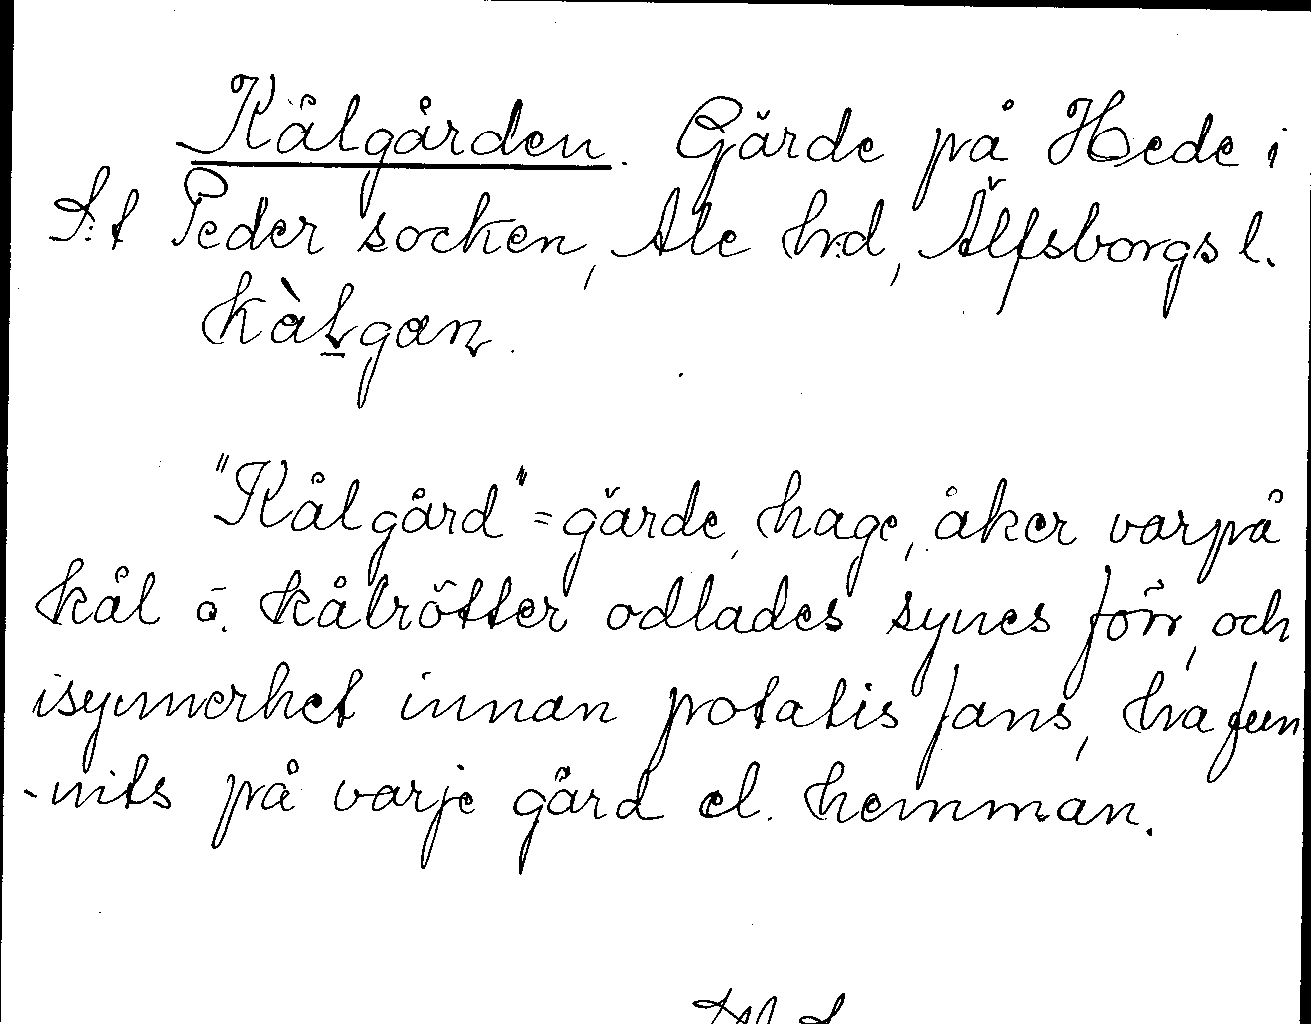 Kålgården. Gärde på Hede i
S:t Peder socken, Ale hd, Älfsborgs l.
kàl̠gan.
"Kålgård" = gärde, hage, åker varpå
kål o. kålrötter odlades synes förr, och
isynnerhet innan potatis fans, ha fun
-nits på varje gård el. hemman.